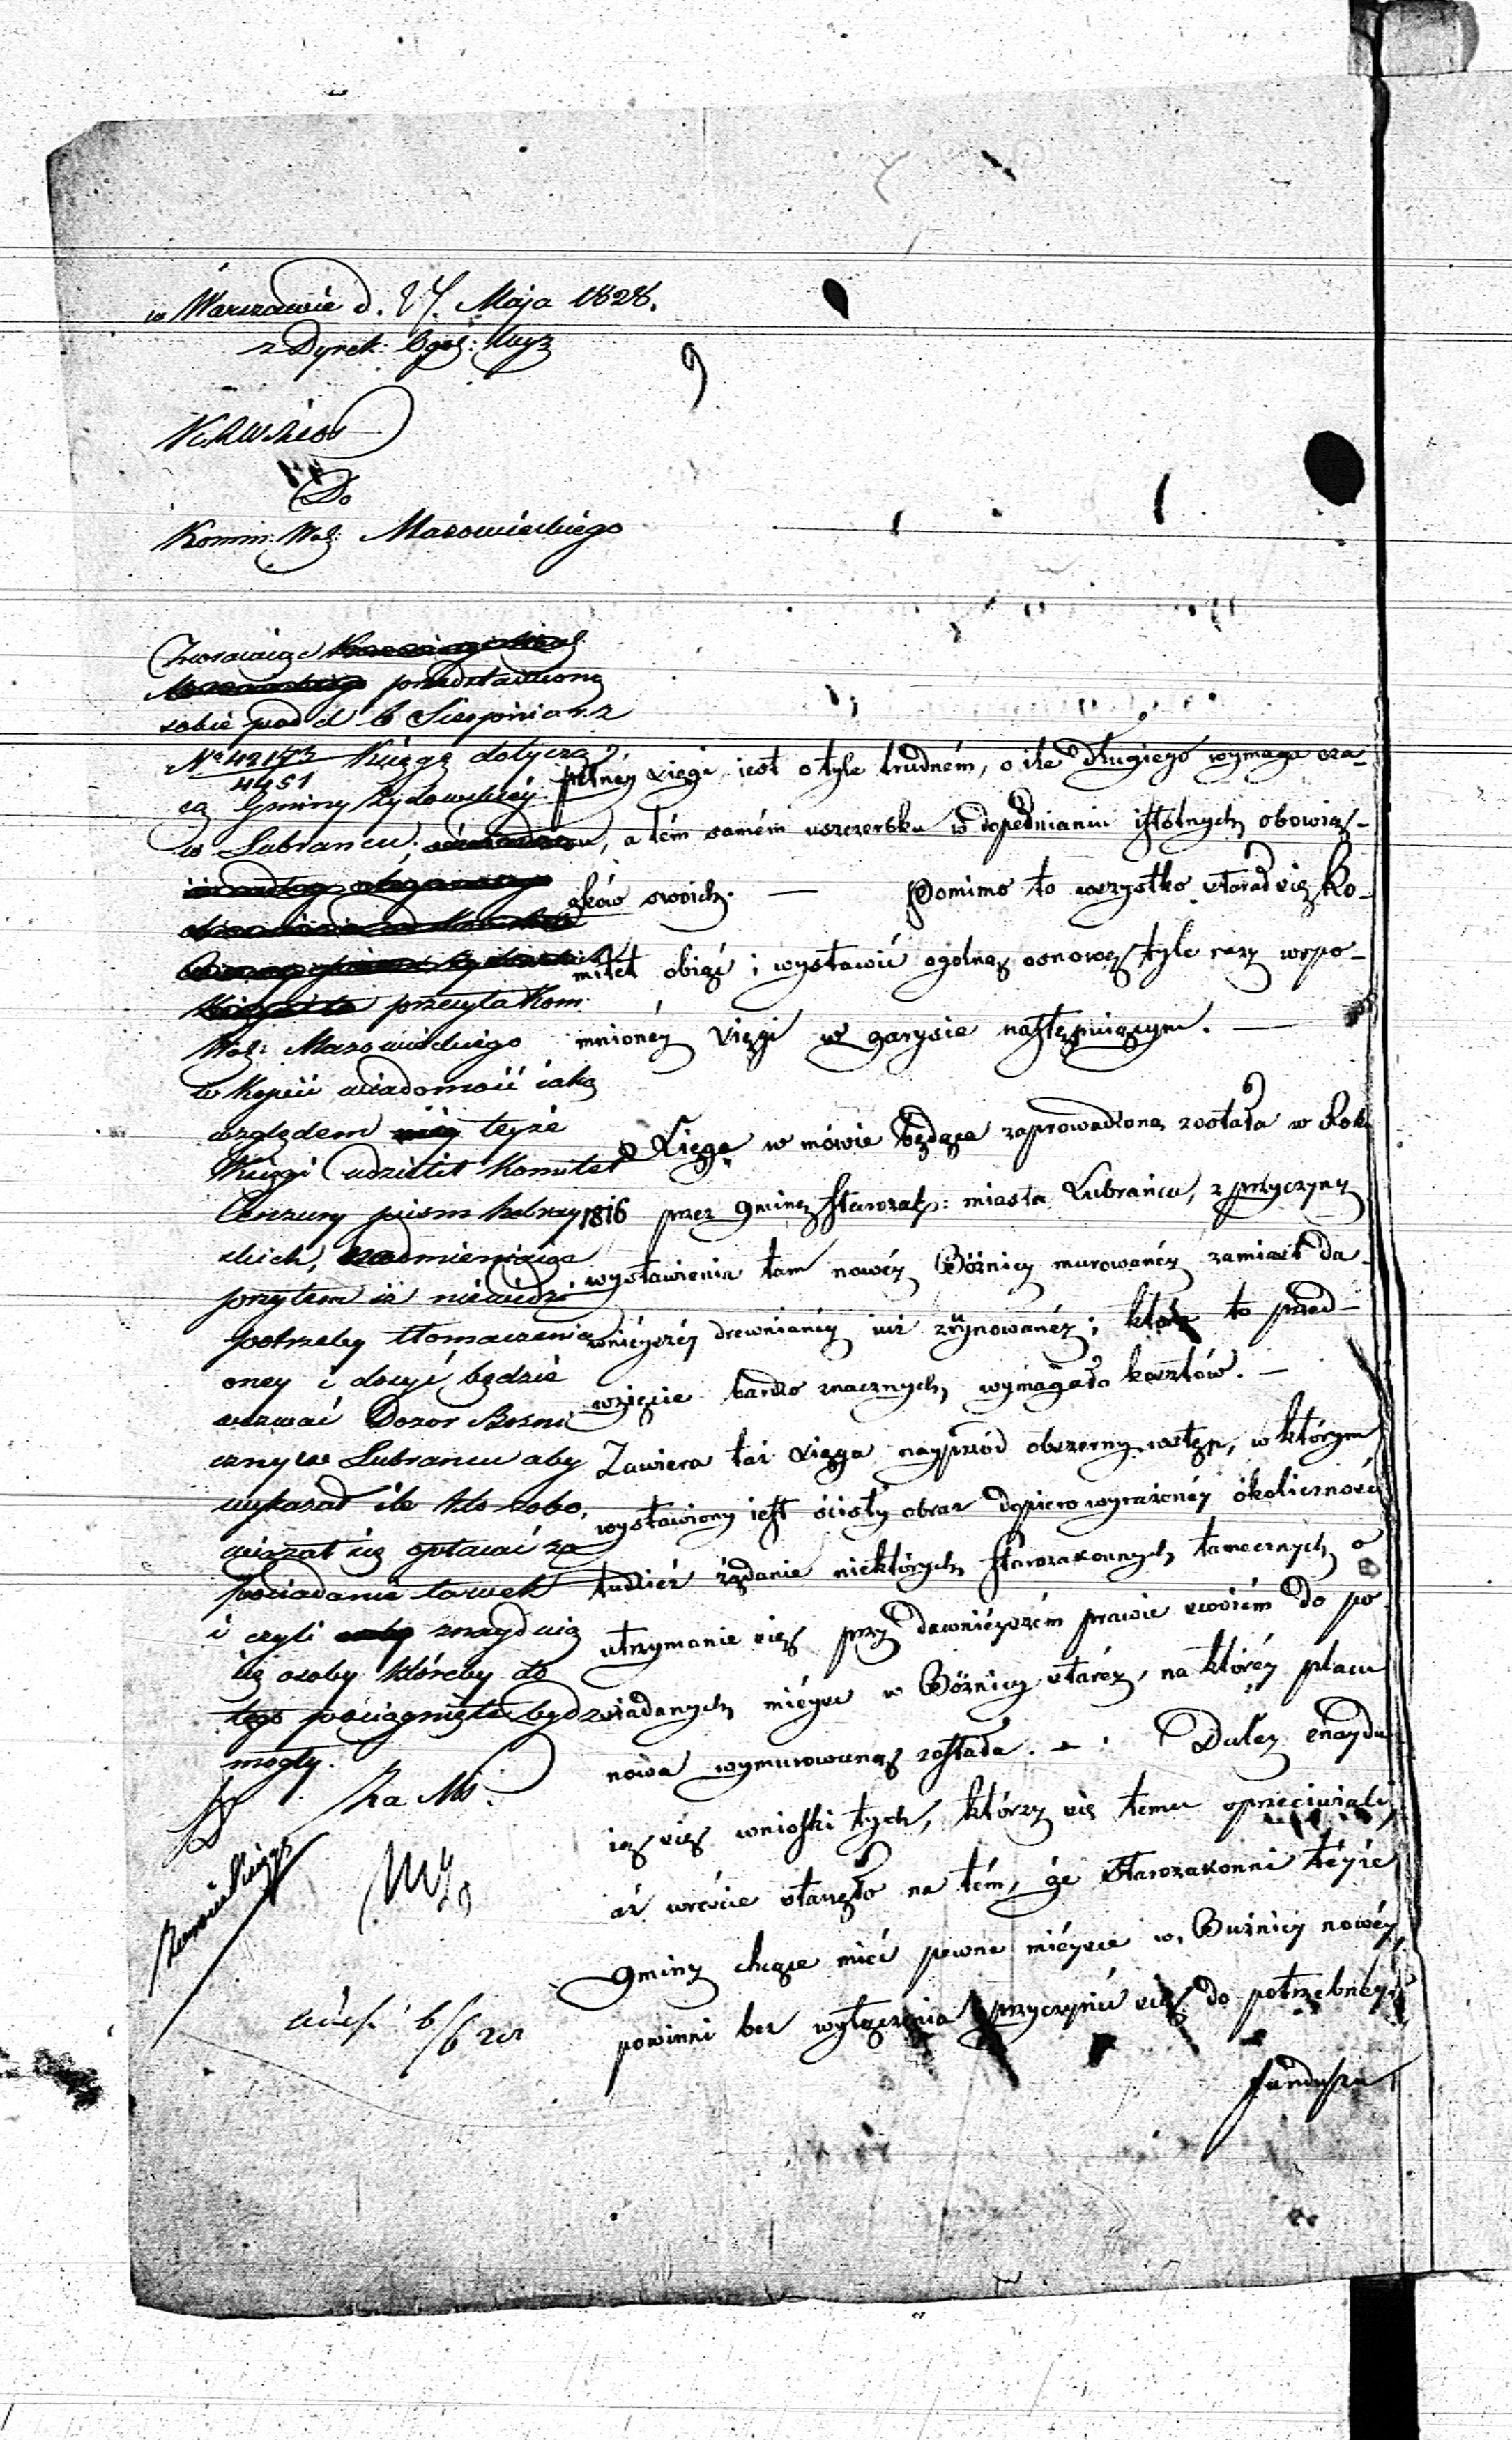 w Warszawie d. 27. Maja 1828.
z Dyrek:
9
Do
Komm: Woj: Mazowieckiego
Zwracaiąc
przedstawioną
sobie pod d 6 Sierpnia r. z
No 42173/4451 Księgę dotyczą
cą Gminy Żydowskiéy
w Lubrancu,
przesyła Kom:
Woj: Mazowieckiego
w kopii wiadomość iaką
względem teyże
Księgi udzielił Komitet
Cenzury pism hebray
skich, nadmieniaiąc
przytem iż niewidzi
potrzeby tłomaczenia
oney i dosyć będzie
wezwać Dozor Bożni
czny w Lubrancu aby
wykazał ile kto zobo,
wiązał się opłacać za
posiadanie ławek
i czyli znayduią
się osoby któreby do
tego pociągnięte bydz
mogły.
6/6
pełnéy xięgi iest o tyle trudném, o ile długiego wymaga cza-
su, a tém samém uszczerbku w dopełnianiu istotnych obowiąz-
zków swoich. — Pomimo to wszystko starał się Ko-
mitet obiąć i wystawić ogolną osnowę tyle razy wspo-
mnionéy xięgi w zarysie następuiącym. —
Xięga w mówie będąca zaprowadzoną została w Roku
1816 przez gminę starozak: miasta Lubrańca, z przyczyny
wystawienia tam nowéy Bóźnicy murowanéy zamiast da-
wniéyszéy drewnianéy iuż zruynowanéy; które to przed-
wzięcie bardzo znacznych wymagało kosztów. —
Zawiera taż xięga nayprzód obszerny wstęp, w którym
wystawiony iest ścisły obraz dopiero wyrażonéy okoliczności
tudzież żądanie niektórych starozakonnych tamecznych o
utrzymanie się przy dawniéyszém prawie swoiém do po-
siadanych miéysc w Bóźnicy staréy, na któréy placu
nowa wymurowaną została. — Daléy znaydu
ią się wnioski tych, którzy się temu sprzeciwiali,
aż wreście stanęło na tém, że Starozakonni téyże
gminy chcące mieć pewne miéysce w Buźnicy nowéy,
powinni bez wyłączenia przyczynić się do potrzebnego
funduszu